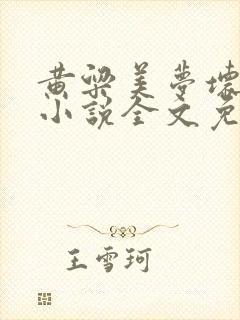 黄梁美梦壞
小說全文免
王雪珂